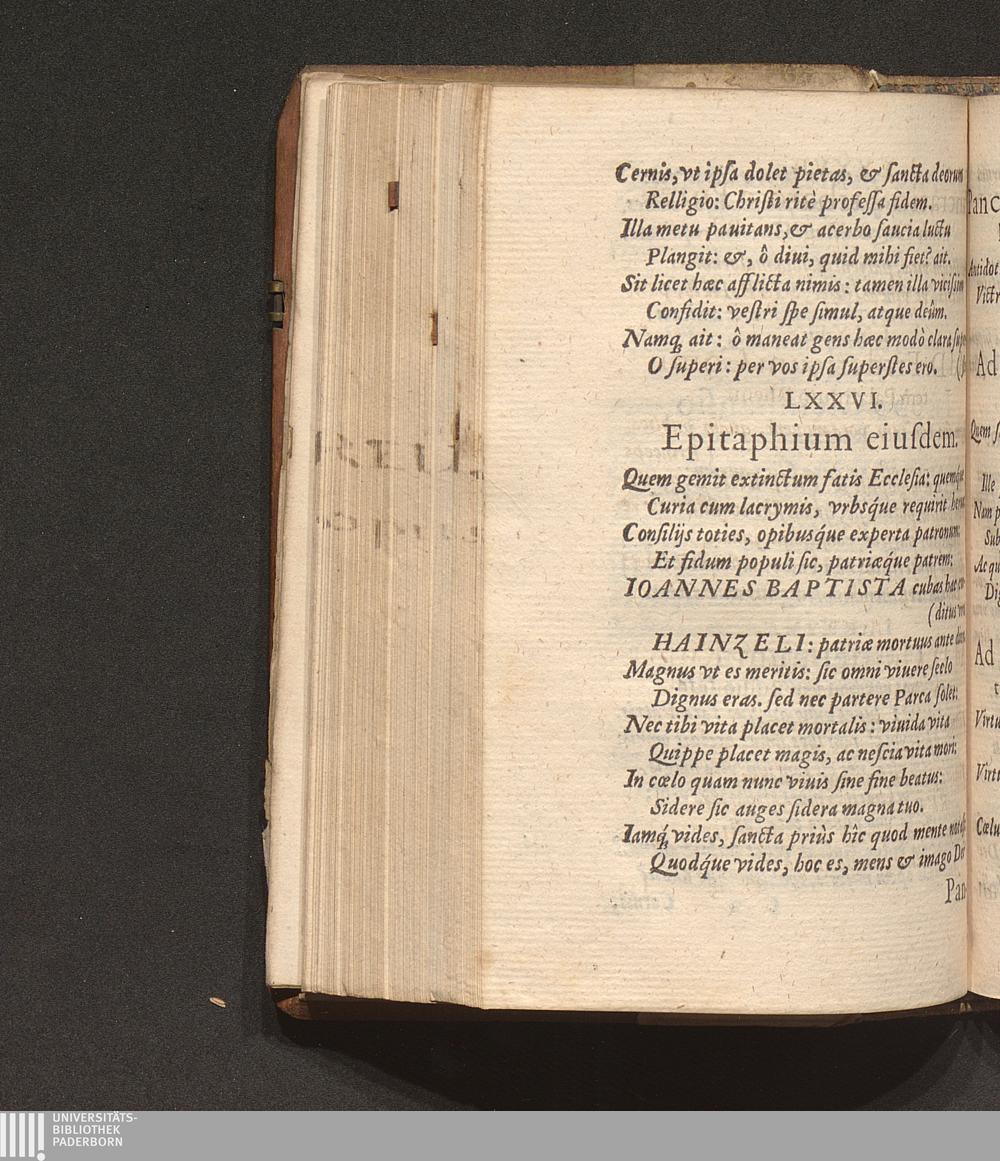 Cernis, vt ipſa dolet pietas, & ſancta deorum
Relligio: Chriſti ritè profeſſa fidem.
Illa metu pauitans, & acerbo ſaucia luctu
Plangit: &, ô diui, quid mihi fiet? ait.
Sit licet hæc afflicta nimis: tamen illa viciſsim
Confidit: veſtri ſpe ſimul, atque deûm.
Namq́, ait: ô maneat gens hæc modò clara
O ſuperi: per vos ipſa ſuperſtes ero.
LXXVI.
Epitaphium eiuſdem.
Quem gemit extinctum fatis Eccleſia: quemq́ue
Curia cum lacrymis, vrbsq́ue requirit
Conſilijs toties, opibusq́ue experta patronum:
Et fidum populi ſic, patriæq́ue patrem:
IOANNES BAPTISTA cubas hac
(ditus
HAINZELI: patriæ mortuus ante
Magnus vt es meritis: ſic omni viuere ſeclo
Dignus eras. ſed nec partere Parca ſolet:
Nec tibi vita placet mortalis: viuida vita
Quippe placet magis, ac neſcia vita mori:
In cœlo quam nunc viuis ſine fine beatus:
Sidere ſic auges ſidera magna tuo.
Iamq́, vides, ſancta priùs hîc quod mente
Quodq́ue vides, hoc es, mens & imago
Pan
Panc
Antidot
Victr
Ad
Quem
Ille
Nam
Sub
Ac qu
Ad
Virtu
Cœlu
UNIVERSITÄTS-
BIBLIOTHEK
PADERBORN